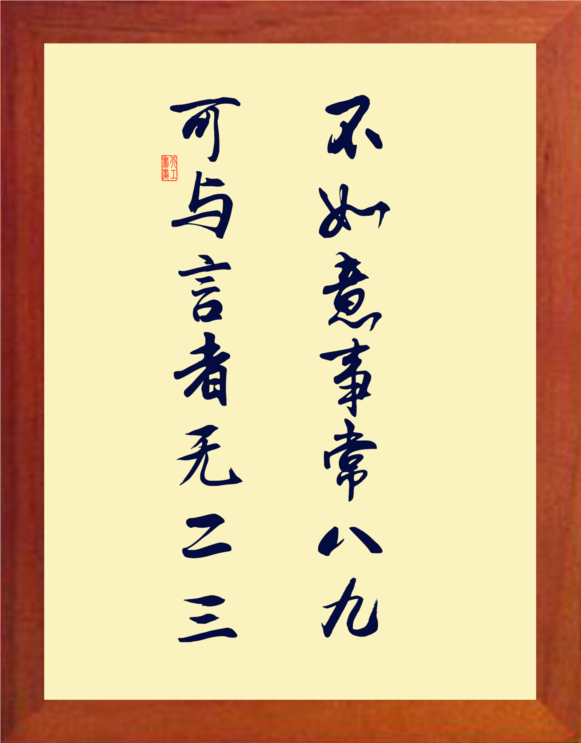 不如意事常八九
可与言者无二三